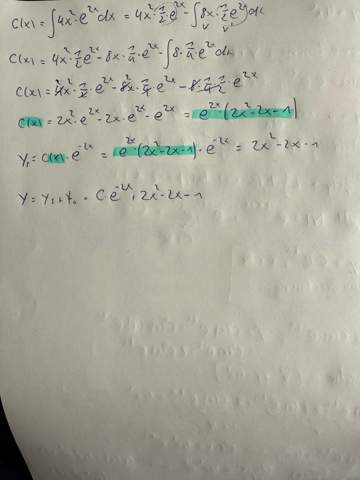 C(x) = ∫4x²·e²ˣdx = 4x²·½e²ˣ - ∫8x·½e²ˣdx
C(x) = 4x²·½e²ˣ - 8x·¼·e²ˣ - ∫8·¼·e²ˣdx
C(x) = 4x²·½·e²ˣ - 8x·¼·e²ˣ - 8·¼·½·e²ˣ
C(x) = 2x²·e²ˣ - 2x·e²ˣ - e²ˣ = e²ˣ·(2x²-2x-1)
C(x)·e⁻²ˣ = e²ˣ·(2x²-2x-1)·e⁻²ˣ = 2x²-2x-1
C·e⁻²ˣ + 2x²-2x-1